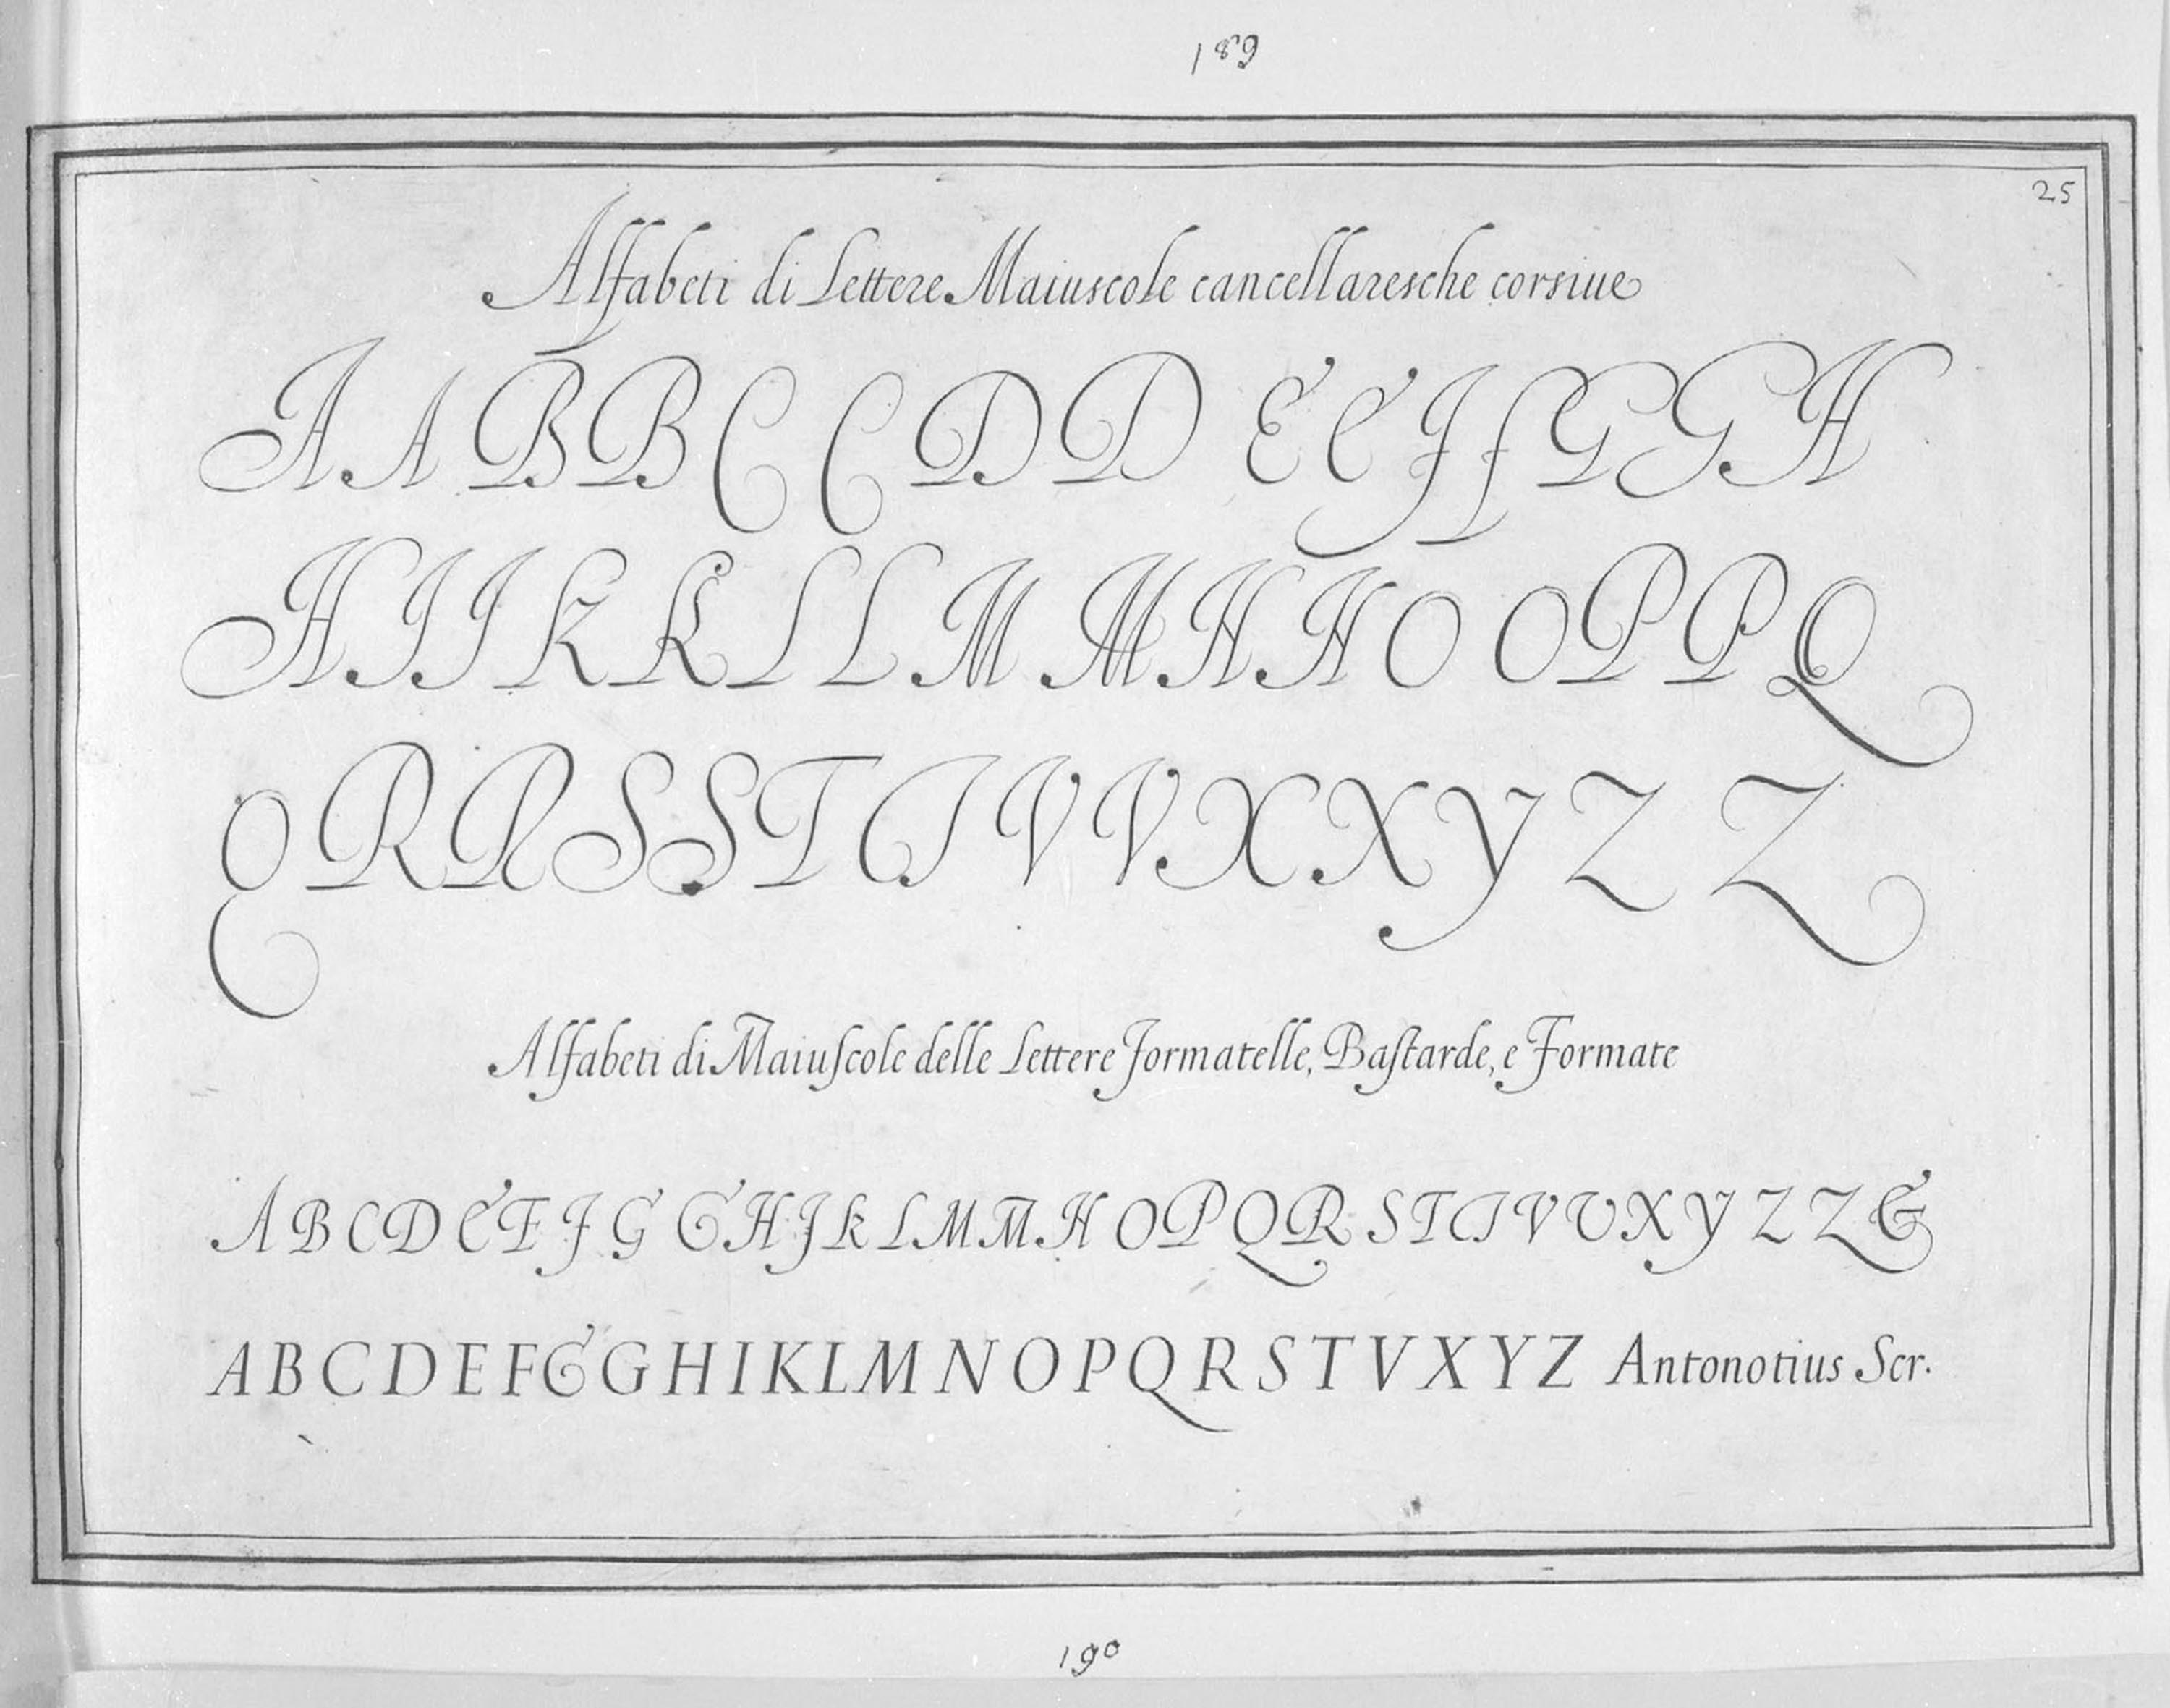 189
25
Alfabeti di Lettere Maiuscole cancellaresche corsiue
A A B B C C D D E E F F G G H
H I I K K L L M M N N O O P P Q
Q R R S S T T V V X X Y Z Z
Alfabeti di Maiuſcole delle Lettere Formatelle, Baſtarde, e Formate
A B C D E F F G G H I K L M M N O P Q R S T T V V X Y Z Z &
A B C D E F G G H I K L M N O P Q R S T V X Y Z Antonotius Scr.
190